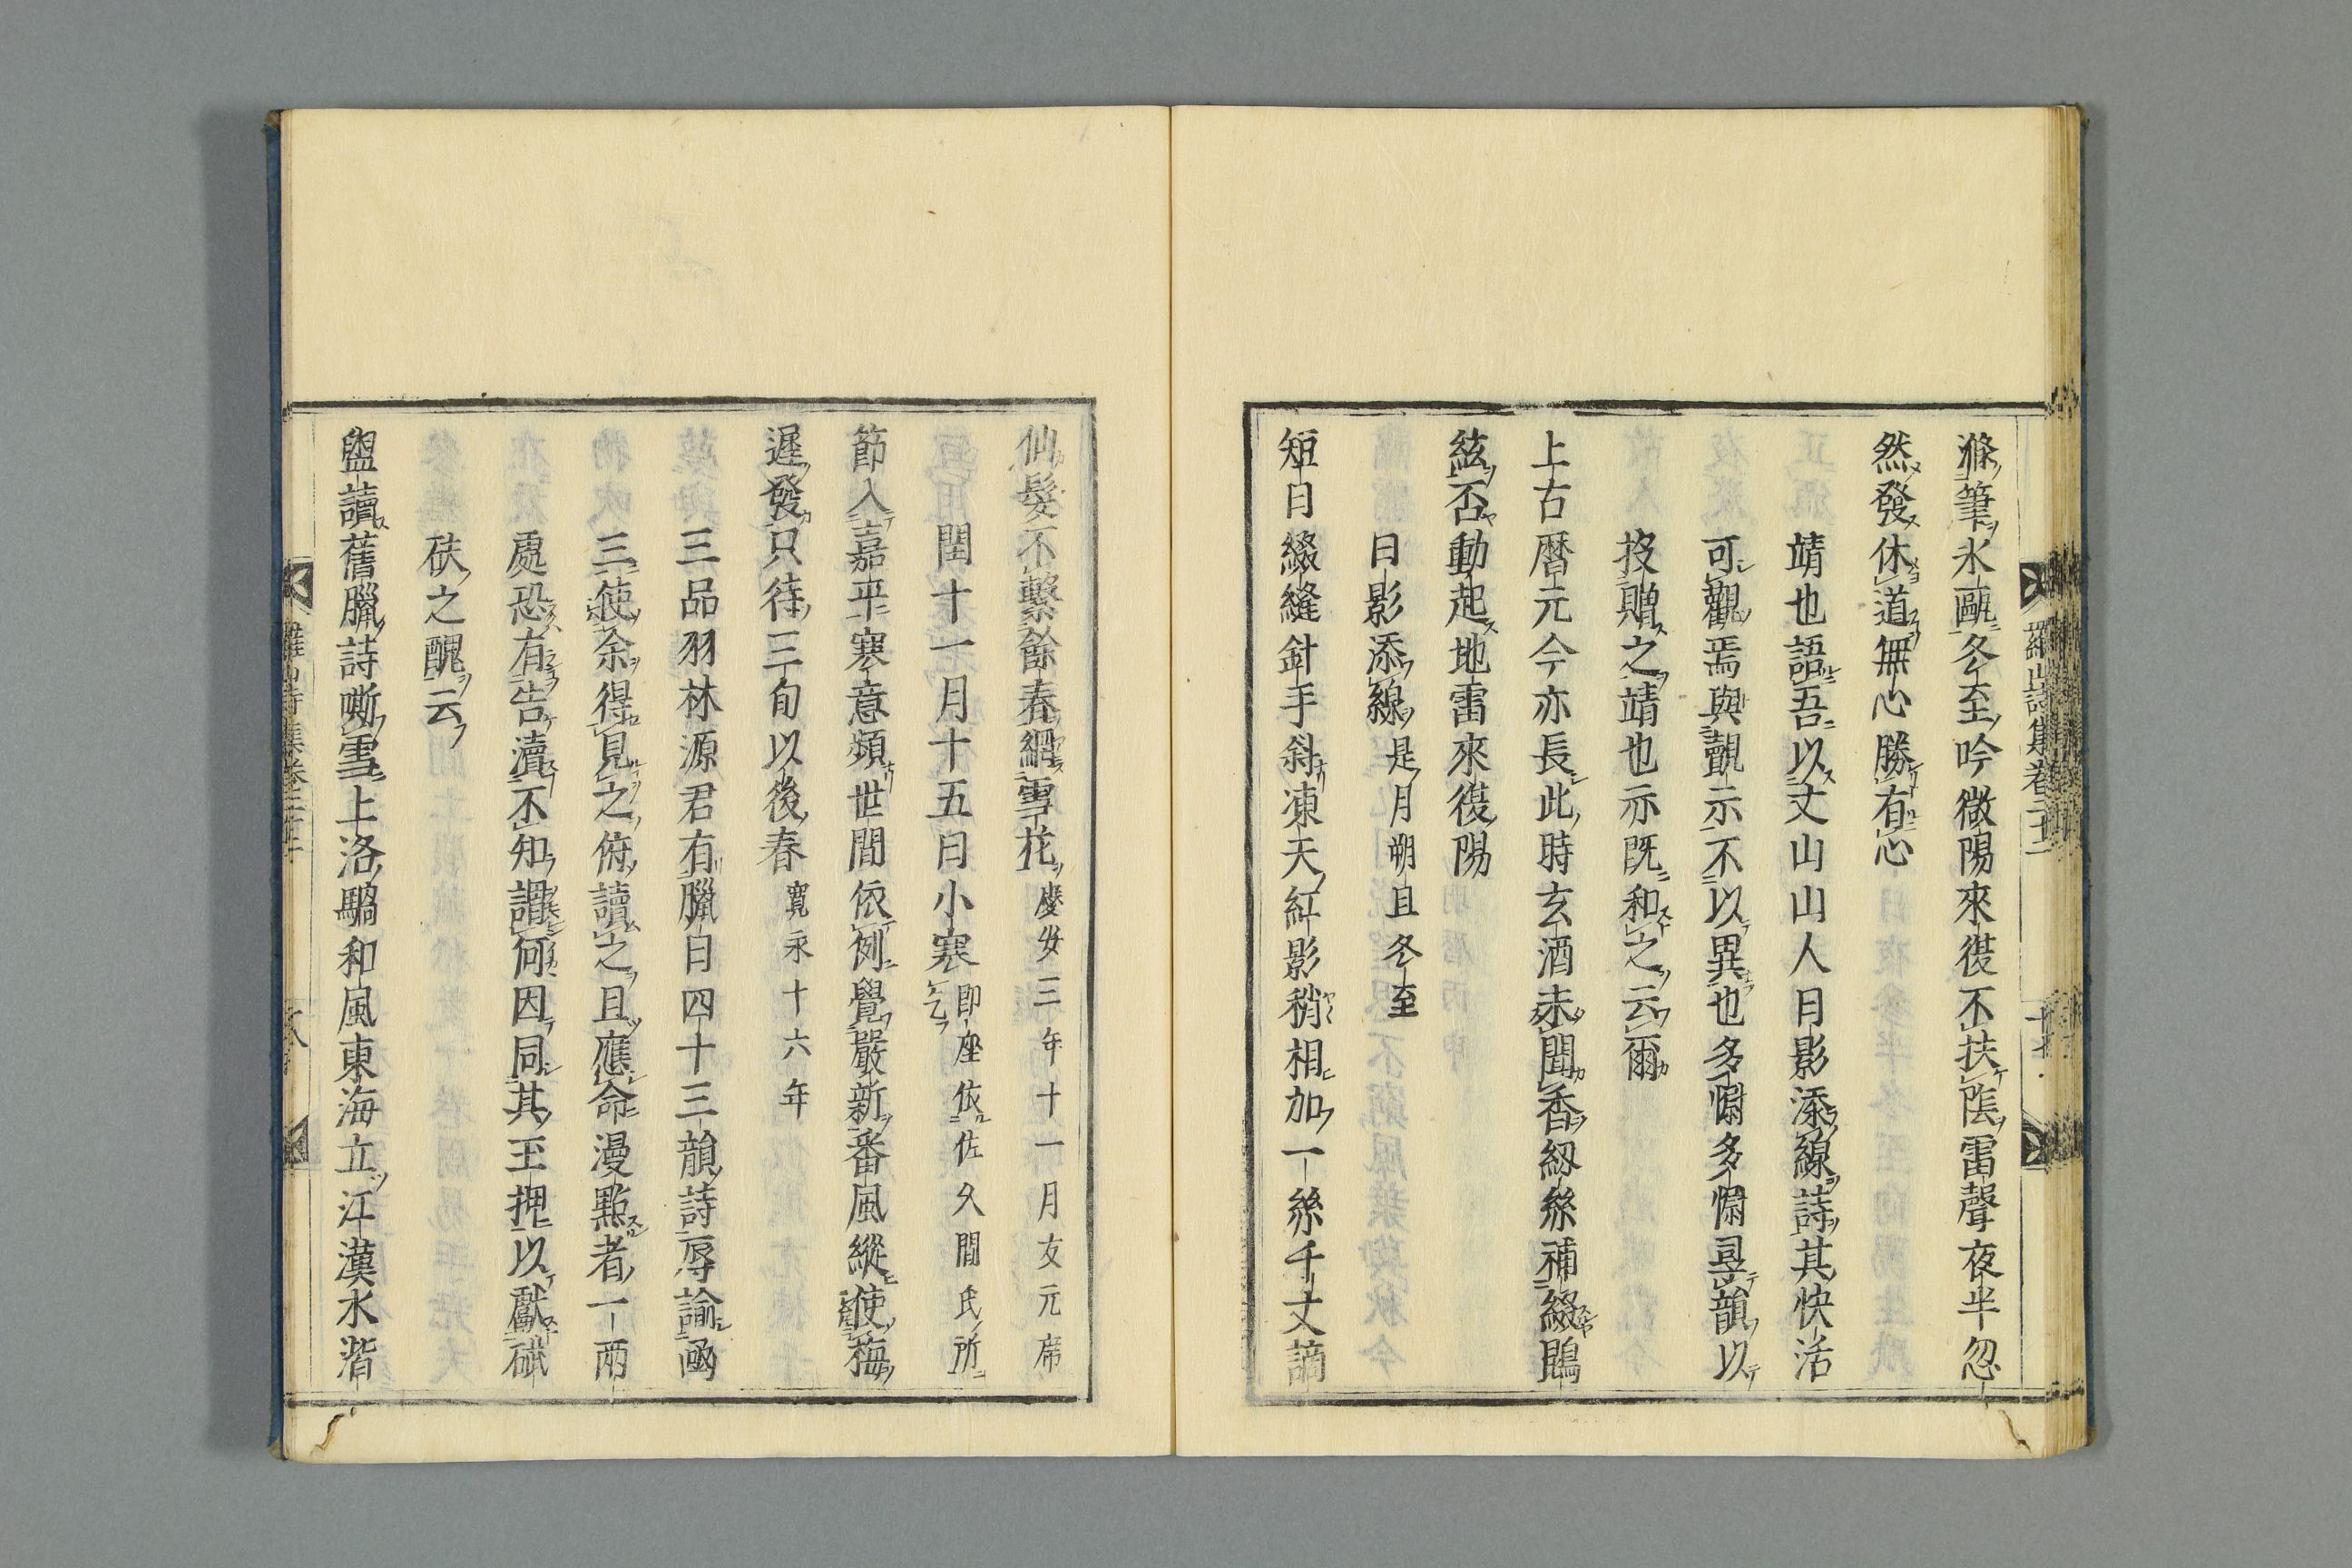 滌筆氷甌冬至吟微陽來復不扶陰雷聲夜半忽
然發休道無心勝有心
靖也語吾以丈山山人日影添線詩其快活
可觀焉與覩示不以異也多慚多慚尋韻以
投贈之靖也亦既和之云爾
上古暦元今亦長此時玄酒未聞香紉絲補綴鵾
絃否動起地雷來復陽
日影添線是月朔旦冬至
短日綴縫針手斜凍天紅影稍相加一絲千丈
仙髮不繫餘春綱雪花慶安三年十一月友元席
閏十一月十五日小寒即座依佐久間氏所乞
節入嘉平寒意頻世間依例覺嚴新番風縱使梅
遲發只待三旬以後春寬永十六年
三品羽林源君有臘日四十三韻詩辱諭函
三使余得見之俯讀之且應命漫點者一兩
處恐有告瀆不知謂何因同其玉押以獻碔
砆之醜云
盥讀舊臘詩嘶雪上洛驕和風東海立江漢水湝
羅山詩集卷